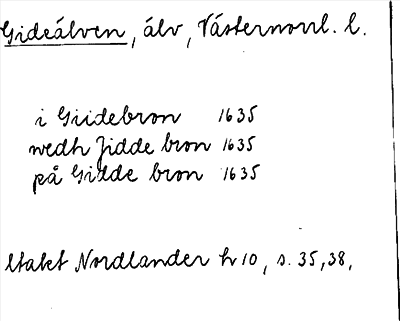 Gideälven, älv, Västernorrl. l.
i Giidebron 1635
wedh Jidde bron 1635
på Gidde bron 1635
Utakt Nordlander h 10, s. 35, 38,